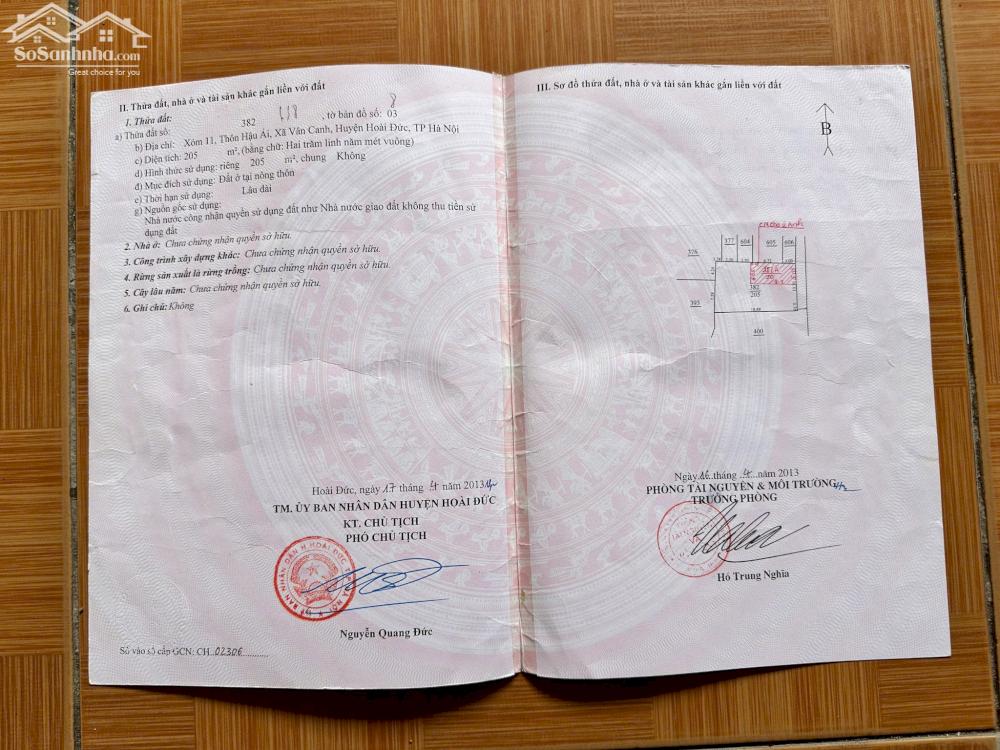 SoSanhnha.com
Great choice for you
II. Thửa đất, nhà ở và tài sản khác gắn liền với đất
1. Thửa đất:
a) Thửa đất số: 382 , tờ bản đồ số: 03 8
b) Địa chỉ: Xóm 11, Thôn Hậu Ái, Xã Vân Canh, Huyện Hoài Đức, TP Hà Nội
c) Diện tích: 205 m², (bằng chữ: Hai trăm linh năm mét vuông)
d) Hình thức sử dụng: riêng 205 m², chung Không
đ) Mục đích sử dụng: Đất ở tại nông thôn
e) Thời hạn sử dụng: Lâu dài
g) Nguồn gốc sử dụng:
Nhà nước công nhận quyền sử dụng đất như Nhà nước giao đất không thu tiền sử
dụng đất
2. Nhà ở: Chưa chứng nhận quyền sở hữu.
3. Công trình xây dựng khác: Chưa chứng nhận quyền sở hữu.
4. Rừng sản xuất là rừng trồng: Chưa chứng nhận quyền sở hữu.
5. Cây lâu năm: Chưa chứng nhận quyền sở hữu.
6. Ghi chú: Không
Hoài Đức, ngày 17 tháng 4 năm 2013
TM. ỦY BAN NHÂN DÂN HUYỆN HOÀI ĐỨC
KT. CHỦ TỊCH
PHÓ CHỦ TỊCH
Nguyễn Quang Đức
Số vào sổ cấp GCN: CH 02306
III. Sơ đồ thửa đất, nhà ở và tài sản khác gắn liền với đất
B
377 604 605 606
376
382
205
393
400
Ngày 16 tháng 4 năm 2013
PHÒNG TÀI NGUYÊN & MÔI TRƯỜNG
TRƯỞNG PHÒNG
Hồ Trung Nghĩa